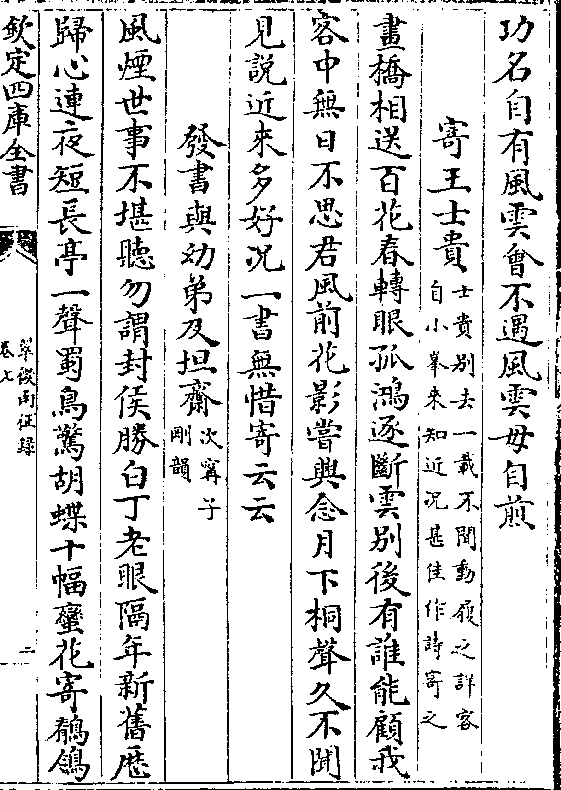 功名自有風雲會不遇風雲毋自煎
寄王士貴士貴別去一載不聞動履之詳客自小峯來知近况甚佳作詩寄之
畫橋相送百花春轉眼孤鴻逐斷雲別後有誰能顧我
客中無日不思君風前花影嘗與念月下桐聲久不聞
見説近來多好况一書無惜寄云云
發書與幼弟及坦齋次寗子剛韻
風煙世事不堪聽勿謂封侯勝白丁老眼隔年新舊厯
歸心連夜短長亭一聲蜀鳥驚胡蝶十幅蠻花寄鶺鴒
欽定四庫全書
翠微南征録
卷七
二